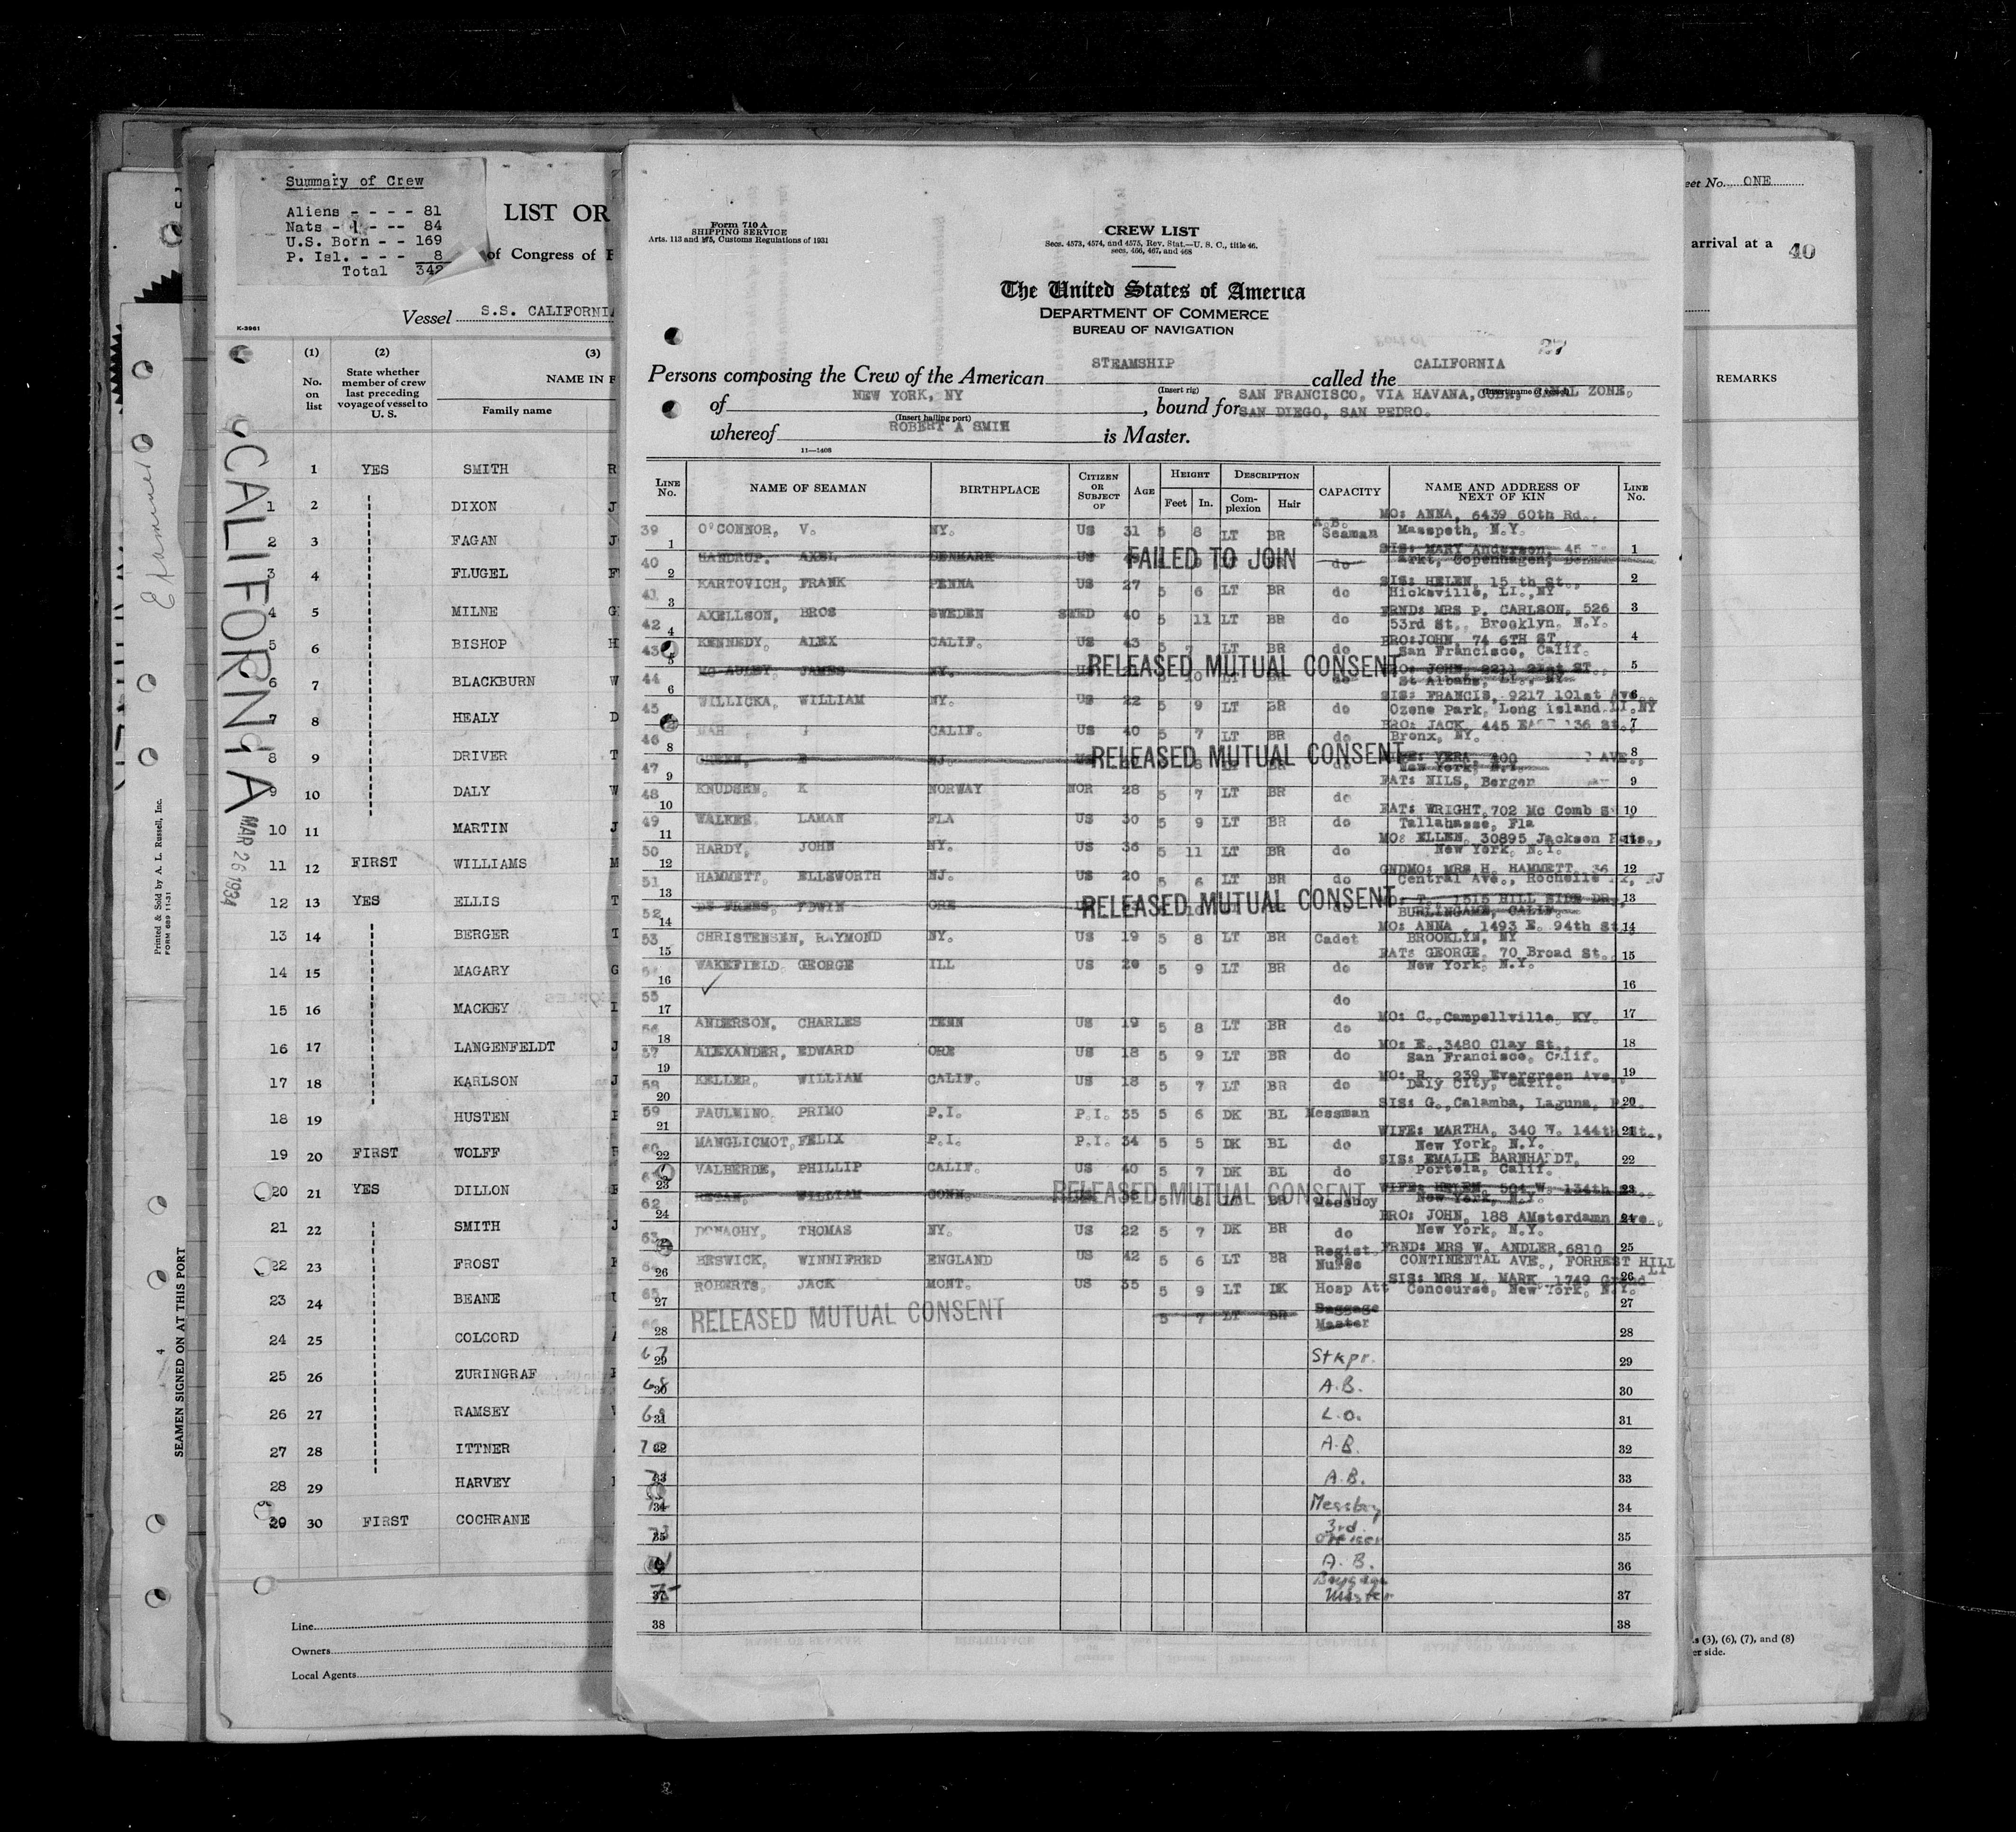 Summary of Crew
Aliens - - - - 81
Nats - - - - 84
U.S. Born - - 169
P. Isl. - - - 8
Total 342
LIST OR
of Congress of
Vessel S.S. CALIFORNIA
K-3961
(1) (2) (3)
No. on list
State whether member of crew last preceding voyage of vessel to U. S.
NAME IN F
Family name
CALIFORNIA
MAR 26 1934
1 YES SMITH R
1 2 DIXON J
2 3 FAGAN J
3 4 FLUGEL F
4 5 MILNE G
5 6 BISHOP H
6 7 BLACKBURN W
7 8 HEALY D
8 9 DRIVER T
9 10 DALY W
10 11 MARTIN J
11 12 FIRST WILLIAMS M
12 13 YES ELLIS T
13 14 BERGER T
14 15 MAGARY G
15 16 MACKEY I
16 17 LANGENFELDT J
17 18 KARLSON J
18 19 HUSTEN
19 20 FIRST WOLFF
20 21 YES DILLON
21 22 SMITH J
22 23 FROST
23 24 BEANE
24 25 COLCORD
25 26 ZURINGRAF
26 27 RAMSEY
27 28 ITTNER
28 29 HARVEY
29 30 FIRST COCHRANE
Line
Owners
Local Agents
Printed & Sold by A. L. Russell, Inc.
FORM 689 11-31
SEAMEN SIGNED ON AT THIS PORT 4
Form 710 A
SHIPPING SERVICE
Arts. 113 and 175, Customs Regulations of 1931
CREW LIST
Secs. 4573, 4574, and 4575, Rev. Stat.—U. S. C., title 46,
secs. 466, 467, and 468
The United States of America
DEPARTMENT OF COMMERCE
BUREAU OF NAVIGATION
27
Persons composing the Crew of the American STEAMSHIP called the CALIFORNIA
(Insert rig) (Insert name of vessel)
of NEW YORK, NY, bound for SAN FRANCISCO, VIA HAVANA, CUBA, CANAL ZONE,
(Insert hailing port) SAN DIEGO, SAN PEDRO.
whereof ROBERT A SMIH is Master.
11—1408
LINE No. NAME OF SEAMAN BIRTHPLACE CITIZEN OR SUBJECT OF AGE HEIGHT Feet In. DESCRIPTION Complexion Hair CAPACITY NAME AND ADDRESS OF NEXT OF KIN LINE No.
39 1 O'CONNOR, V. NY. US 31 5 8 LT BR A.B. Seaman MO: ANNA, 6439 60th Rd., Masspeth, N.Y. 1
40 2 SANDRUP, AXEL DENMARK US FAILED TO JOIN do SIS: MARY Anderson, 45 Copenhagen, 2
41 3 KARTOVICH, FRANK PENNA US 27 5 6 LT BR do SIS: HELEN, 15 th St., Hicksville, LI., NY 3
42 4 AXELLSON, BROS SWEDEN SWED 40 5 11 LT BR do FRND: MRS P. CARLSON, 526 53rd St., Brooklyn, N.Y. 4
43 5 KENNEDY, ALEX CALIF. US 43 5 7 LT BR do BRO: JOHN, 74 6TH ST. San Francisco, Calif. 5
44 6 MC AULEY, JAMES NY. RELEASED MUTUAL CONSENT do St Albans, LI., NY 6
45 WILLICKA, WILLIAM NY. US 22 5 9 LT BR do SIS: FRANCIS, 9217 101st Ave. Ozone Park, Long Island LI, NY 7
46 8 CALIF. US 40 5 7 LT BR do BRO: JACK, 445 EAST 136 St., Bronx, NY. 8
47 9 GREEN, NJ. RELEASED MUTUAL CONSENT VERA, AVE., New York, N.Y. 9
48 10 KNUDSEN, K NORWAY NOR 28 5 7 LT BR do FAT: NILS, Bergen 10
49 11 WALKER, LAMAN FLA US 30 5 9 LT BR do FAT: WRIGHT, 702 Mc Comb St Tallahasse, Fla 11
50 12 HARDY, JOHN NY. US 36 5 11 LT BR do MO: ELLEN, 30895 Jackson New York, N.Y. 12
51 13 HAMMETT, ELLSWORTH NJ. US 20 5 6 LT BR do GNDMO: MRS H. HAMMETT, 36 Central Ave., Rochelle NJ 13
52 14 DE FREES, EDWIN ORE RELEASED MUTUAL CONSENT 1515 HILL SIDE DR., BURLINGAME, CALIF. 14
53 15 CHRISTENSEN, RAYMOND NY. US 19 5 8 LT BR Cadet MO: ANNA, 1493 E. 94th St. BROOKLYN, NY 15
54 16 WAKEFIELD GEORGE ILL US 20 5 9 LT BR do FAT: GEORGE, 70 Broad St., New York, N.Y. 16
55 17 do 17
56 18 ANDERSON, CHARLES TENN US 19 5 8 LT BR do MO: C., Campellville, KY. 18
57 19 ALEXANDER, EDWARD ORE US 18 5 9 LT BR do MO: E., 3480 Clay St., San Francisco, Calif. 19
58 20 KELLER, WILLIAM CALIF. US 18 5 7 LT BR do MO: R., 239 Evergreen Ave. Daly City, Calif. 20
59 21 FAULMINO, PRIMO P.I. P.I. 35 5 6 DK BL Messman SIS: G., Calamba, Laguna, P.I. 21
60 22 MANGLICMOT, FELIX P.I. P.I. 34 5 5 DK BL do WIFE: MARTHA, 340 W. 144th St., New York, N.Y. 22
61 23 VALBERDE, PHILLIP CALIF. US 40 5 7 DK BL do SIS: EMALIE BARNHARDT, Portola, Calif. 23
62 24 WILLIAM CONN. RELEASED MUTUAL CONSENT 5 8 BR Messboy WIFE: HELEN, 504 W. 134th New York, N.Y. 24
63 DONAGHY, THOMAS NY. US 22 5 7 DK BR do BRO: JOHN, 188 AMsterdamn Ave., New York, N.Y. 25
64 26 BESWICK, WINNIFRED ENGLAND US 42 5 6 LT BR Regist. Nurse FRND: MRS W. ANDLER, 6810 CONTINENTAL AVE., FORREST HILL LI 26
65 27 ROBERTS, JACK MONT. US 35 5 9 LT DK Hosp Att SIS: MRS M. MARK, 1749 Grand Concourse, New York, N.Y. 27
66 28 RELEASED MUTUAL CONSENT 5 7 LT BR Baggage Master 28
67 29 Stkpr. 29
68 30 A.B. 30
69 31 L.O. 31
70 32 A.B. 32
33 A.B. 33
34 Messboy 34
35 3rd Officer 35
36 A.B. 36
75 37 Baggage Master 37
38 38
Sheet No. ONE
arrival at a 40
REMARKS
(3), (6), (7), and (8)
er side.